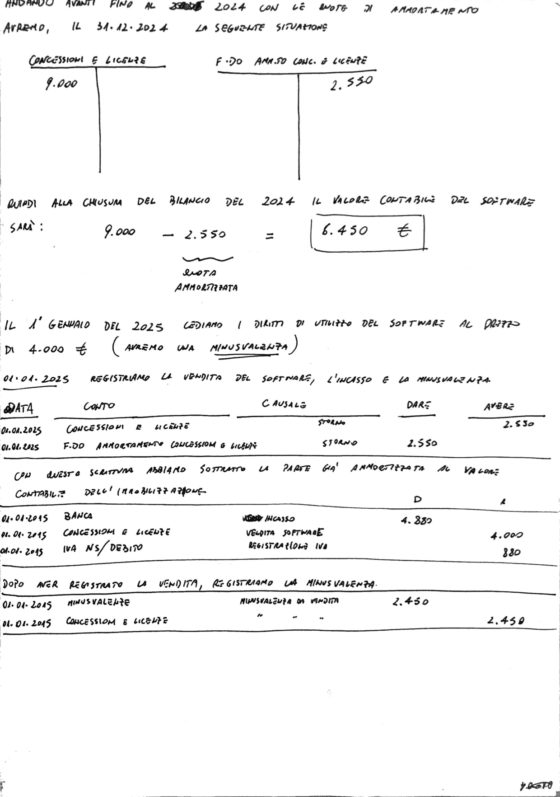 ANDANDO AVANTI FINO AL 2024 CON LE QUOTE DI AMMORTAMENTO
AVREMO, IL 31.12.2024 LA SEGUENTE SITUAZIONE
CONCESSIONI E LICENZE
F.DO AMM.TO CONC. E LICENZE
9.000
2.550
QUINDI ALLA CHIUSURA DEL BILANCIO DEL 2024 IL VALORE CONTABILE DEL SOFTWARE
SARÀ: 9.000 - 2.550 = 6.450 €
QUOTA
AMMORTIZZATA
IL 1° GENNAIO DEL 2025 CEDIAMO I DIRITTI DI UTILIZZO DEL SOFTWARE AL PREZZO
DI 4.000 € (AVREMO UNA MINUSVALENZA)
01.01.2025 REGISTRIAMO LA VENDITA DEL SOFTWARE, L'INCASSO E LA MINUSVALENZA
DATA CONTO CAUSALE DARE AVERE
01.01.2025 CONCESSIONI E LICENZE STORNO 2.550
01.01.2025 F.DO AMMORTAMENTO CONCESSIONI E LICENZE STORNO 2.550
CON QUESTA SCRITTURA ABBIAMO SOTTRATTO LA PARTE GIÀ AMMORTIZZATA AL VALORE
CONTABILE DELL'IMMOBILIZZAZIONE
D A
01.01.2015 BANCA INCASSO 4.880
01.01.2015 CONCESSIONI E LICENZE VENDITA SOFTWARE 4.000
01.01.2015 IVA NS/DEBITO REGISTRAZIONE IVA 880
DOPO AVER REGISTRATO LA VENDITA, REGISTRIAMO LA MINUSVALENZA.
01.01.2015 MINUSVALENZE MINUSVALENZA DA VENDITA 2.450
01.01.2015 CONCESSIONI E LICENZE " " " 2.450